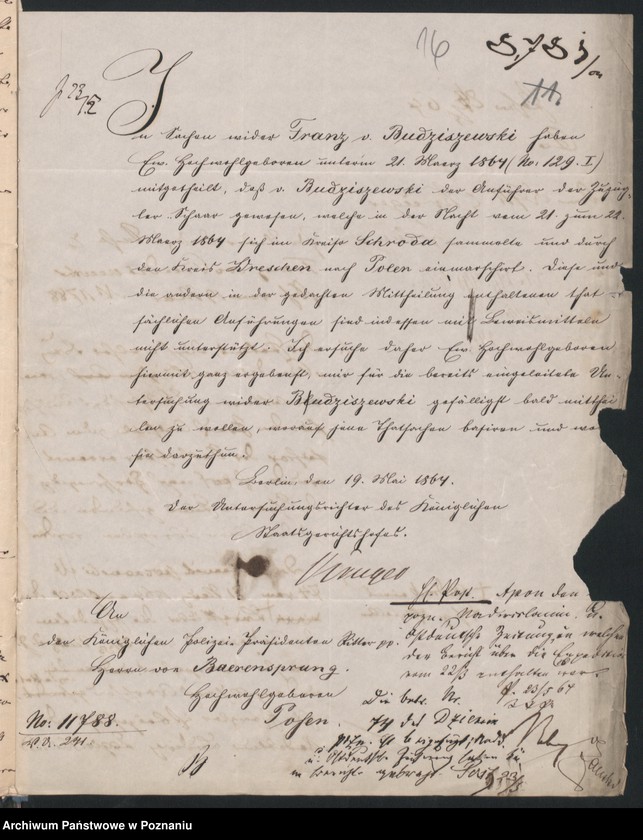 16
11
In Sachen wider Franz v. Budziszewski haben
Ew. Hochwohlgeboren unterm 21. Maerz 1864 (No: 129. I.)
mitgetheilt, daß v. Budziszewski der Anführer der Zuzüg-
ler Schaar gewesen, welche in der Nacht vom 21. zum 22.
Maerz 1864 sich im Kreise Schroda sammelte und durch
den Kreis Wreschen nach Polen einmarschirt. Diese und
die andern in der gedachten Mittheilung enthaltenen that-
sächlichen Anführungen sind indessen mit Beweismitteln
nicht unterstützt. Ich ersuche daher Ew. Hochwohlgeboren
hiermit ganz ergebenst, mir für die bereits eingeleitete Un-
tersuchung wider Budziszewski gefälligst bald mitthei
len zu wollen, worauf jene Thatsachen basiren und wo
sie darzuthun.
Berlin, den 19. Mai 1864.
Der Untersuchungsrichter des Königlichen
Staatsgerichtshofes.
An
den Königlichen Polizei-Präsidenten Ritter pp.
Herrn von Baerensprung.
Hochwohlgeboren
Posen.
No: 11788.
Ostdeutsche Zeitung in welcher
der Bericht über die Expedition
vom 22/3 enthalten war.
Die betr. Nr.
74 des Dziennik
Archiwum Państwowe w Poznaniu